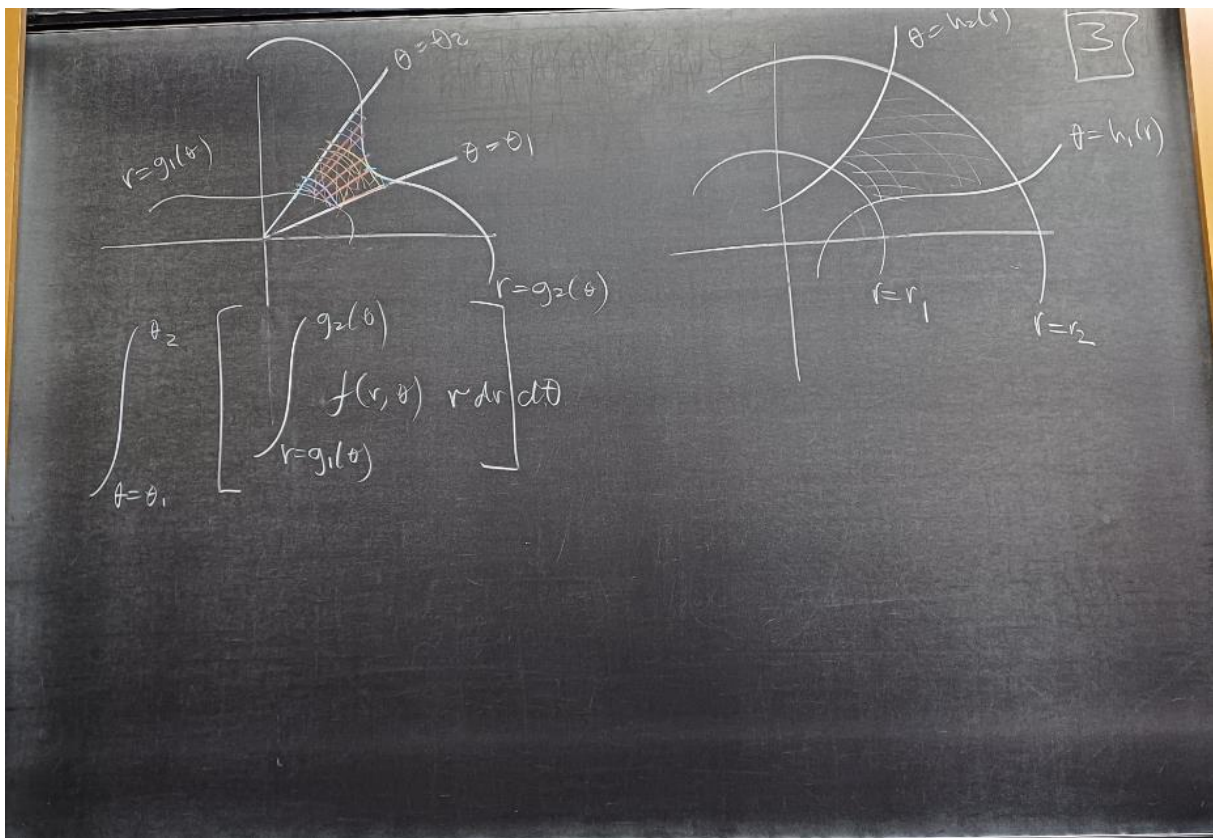 θ=θ2
r=g1(θ)
θ=θ1
r=g2(θ)
∫_{θ=θ1}^{θ2} [ ∫_{r=g1(θ)}^{g2(θ)} f(r, θ) r dr ] dθ
3
θ=h2(r)
θ=h1(r)
r=r1
r=r2